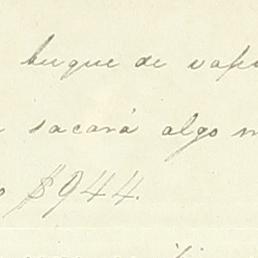 buque de vapo
sacará algo m
$944.